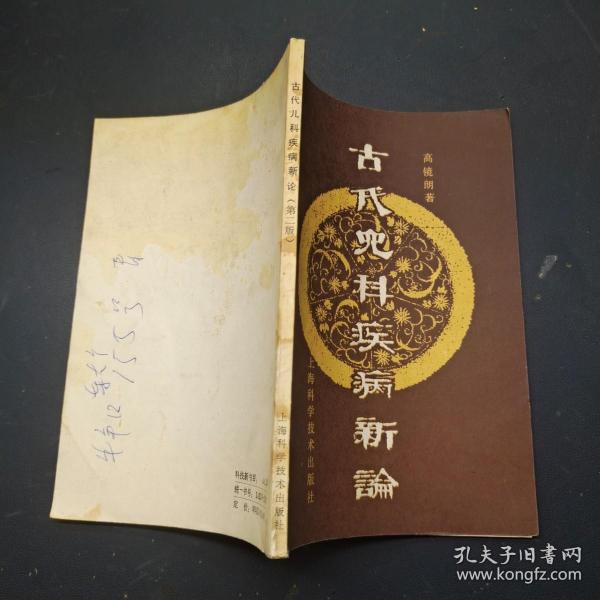 古代兒科疾病新論
高镜朗著
上海科学技术出版社
古代儿科疾病新论（第二版）
上海科学技术出版社
科技新书目：
统一书号：
定 价：
孔夫子旧书网
www.kongfz.com